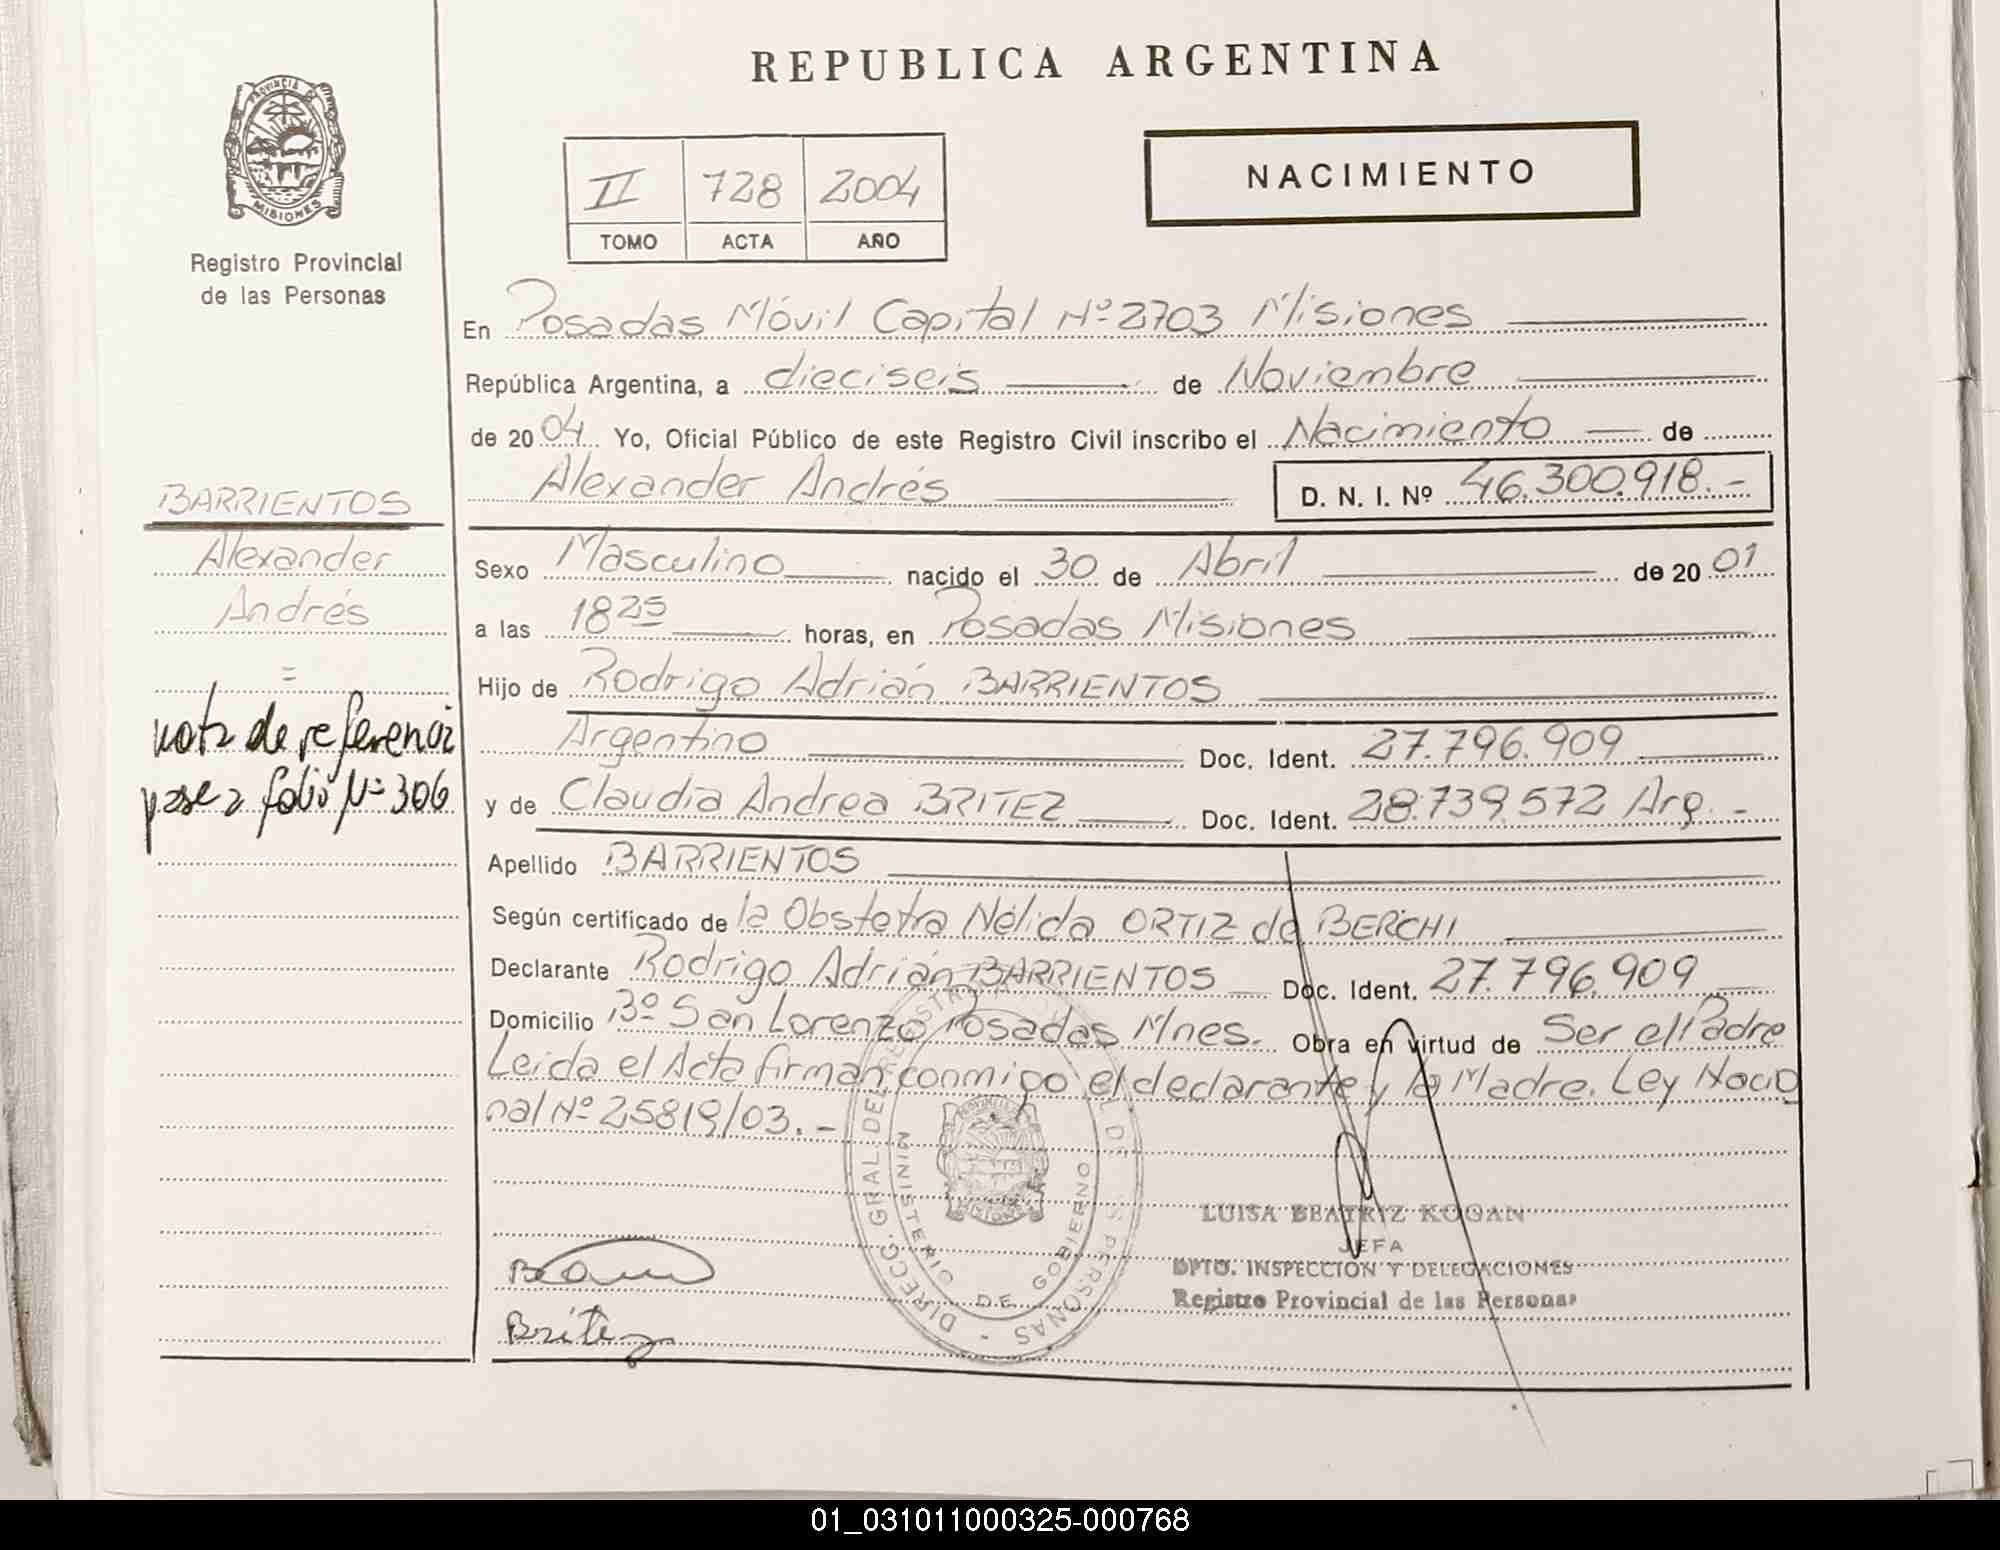 REPUBLICA ARGENTINA
PROVINCIA DE
MISIONES
Registro Provincial
de las Personas
II 728 2004
TOMO ACTA AÑO
NACIMIENTO
En Posadas Móvil Capital Nº 2703 Misiones
República Argentina, a dieciseis de Noviembre
de 2004 Yo, Oficial Público de este Registro Civil inscribo el Nacimiento de
Alexander Andrés D. N. I. Nº 46.300.918.-
BARRIENTOS
Alexander
Andrés
=
nota de referencia
pase a folio Nº 306
Sexo Masculino nacido el 30 de Abril de 2001
a las 18 25 horas, en Posadas Misiones
Hijo de Rodrigo Adrián BARRIENTOS
Argentino Doc. Ident. 27.796.909
y de Claudia Andrea BRITEZ Doc. Ident. 28.739.572 Arg.-
Apellido BARRIENTOS
Según certificado de la Obstetra Nélida ORTIZ de BERCHI
Declarante Rodrigo Adrián BARRIENTOS Doc. Ident. 27.796.909
Domicilio Bº San Lorenzo Posadas Mnes. Obra en virtud de Ser el Padre
Leída el Acta firman conmigo el declarante y la Madre. Ley Nacio
nal Nº 25819/03.-
DIRECC. GRAL. DEL REGISTRO
DE PERSONAS
MINISTERIO DE GOBIERNO
LUISA BEATRIZ KOGAN
JEFA
DPTO. INSPECCION Y DELEGACIONES
Registro Provincial de las Personas
Britez
01_031011000325-000768